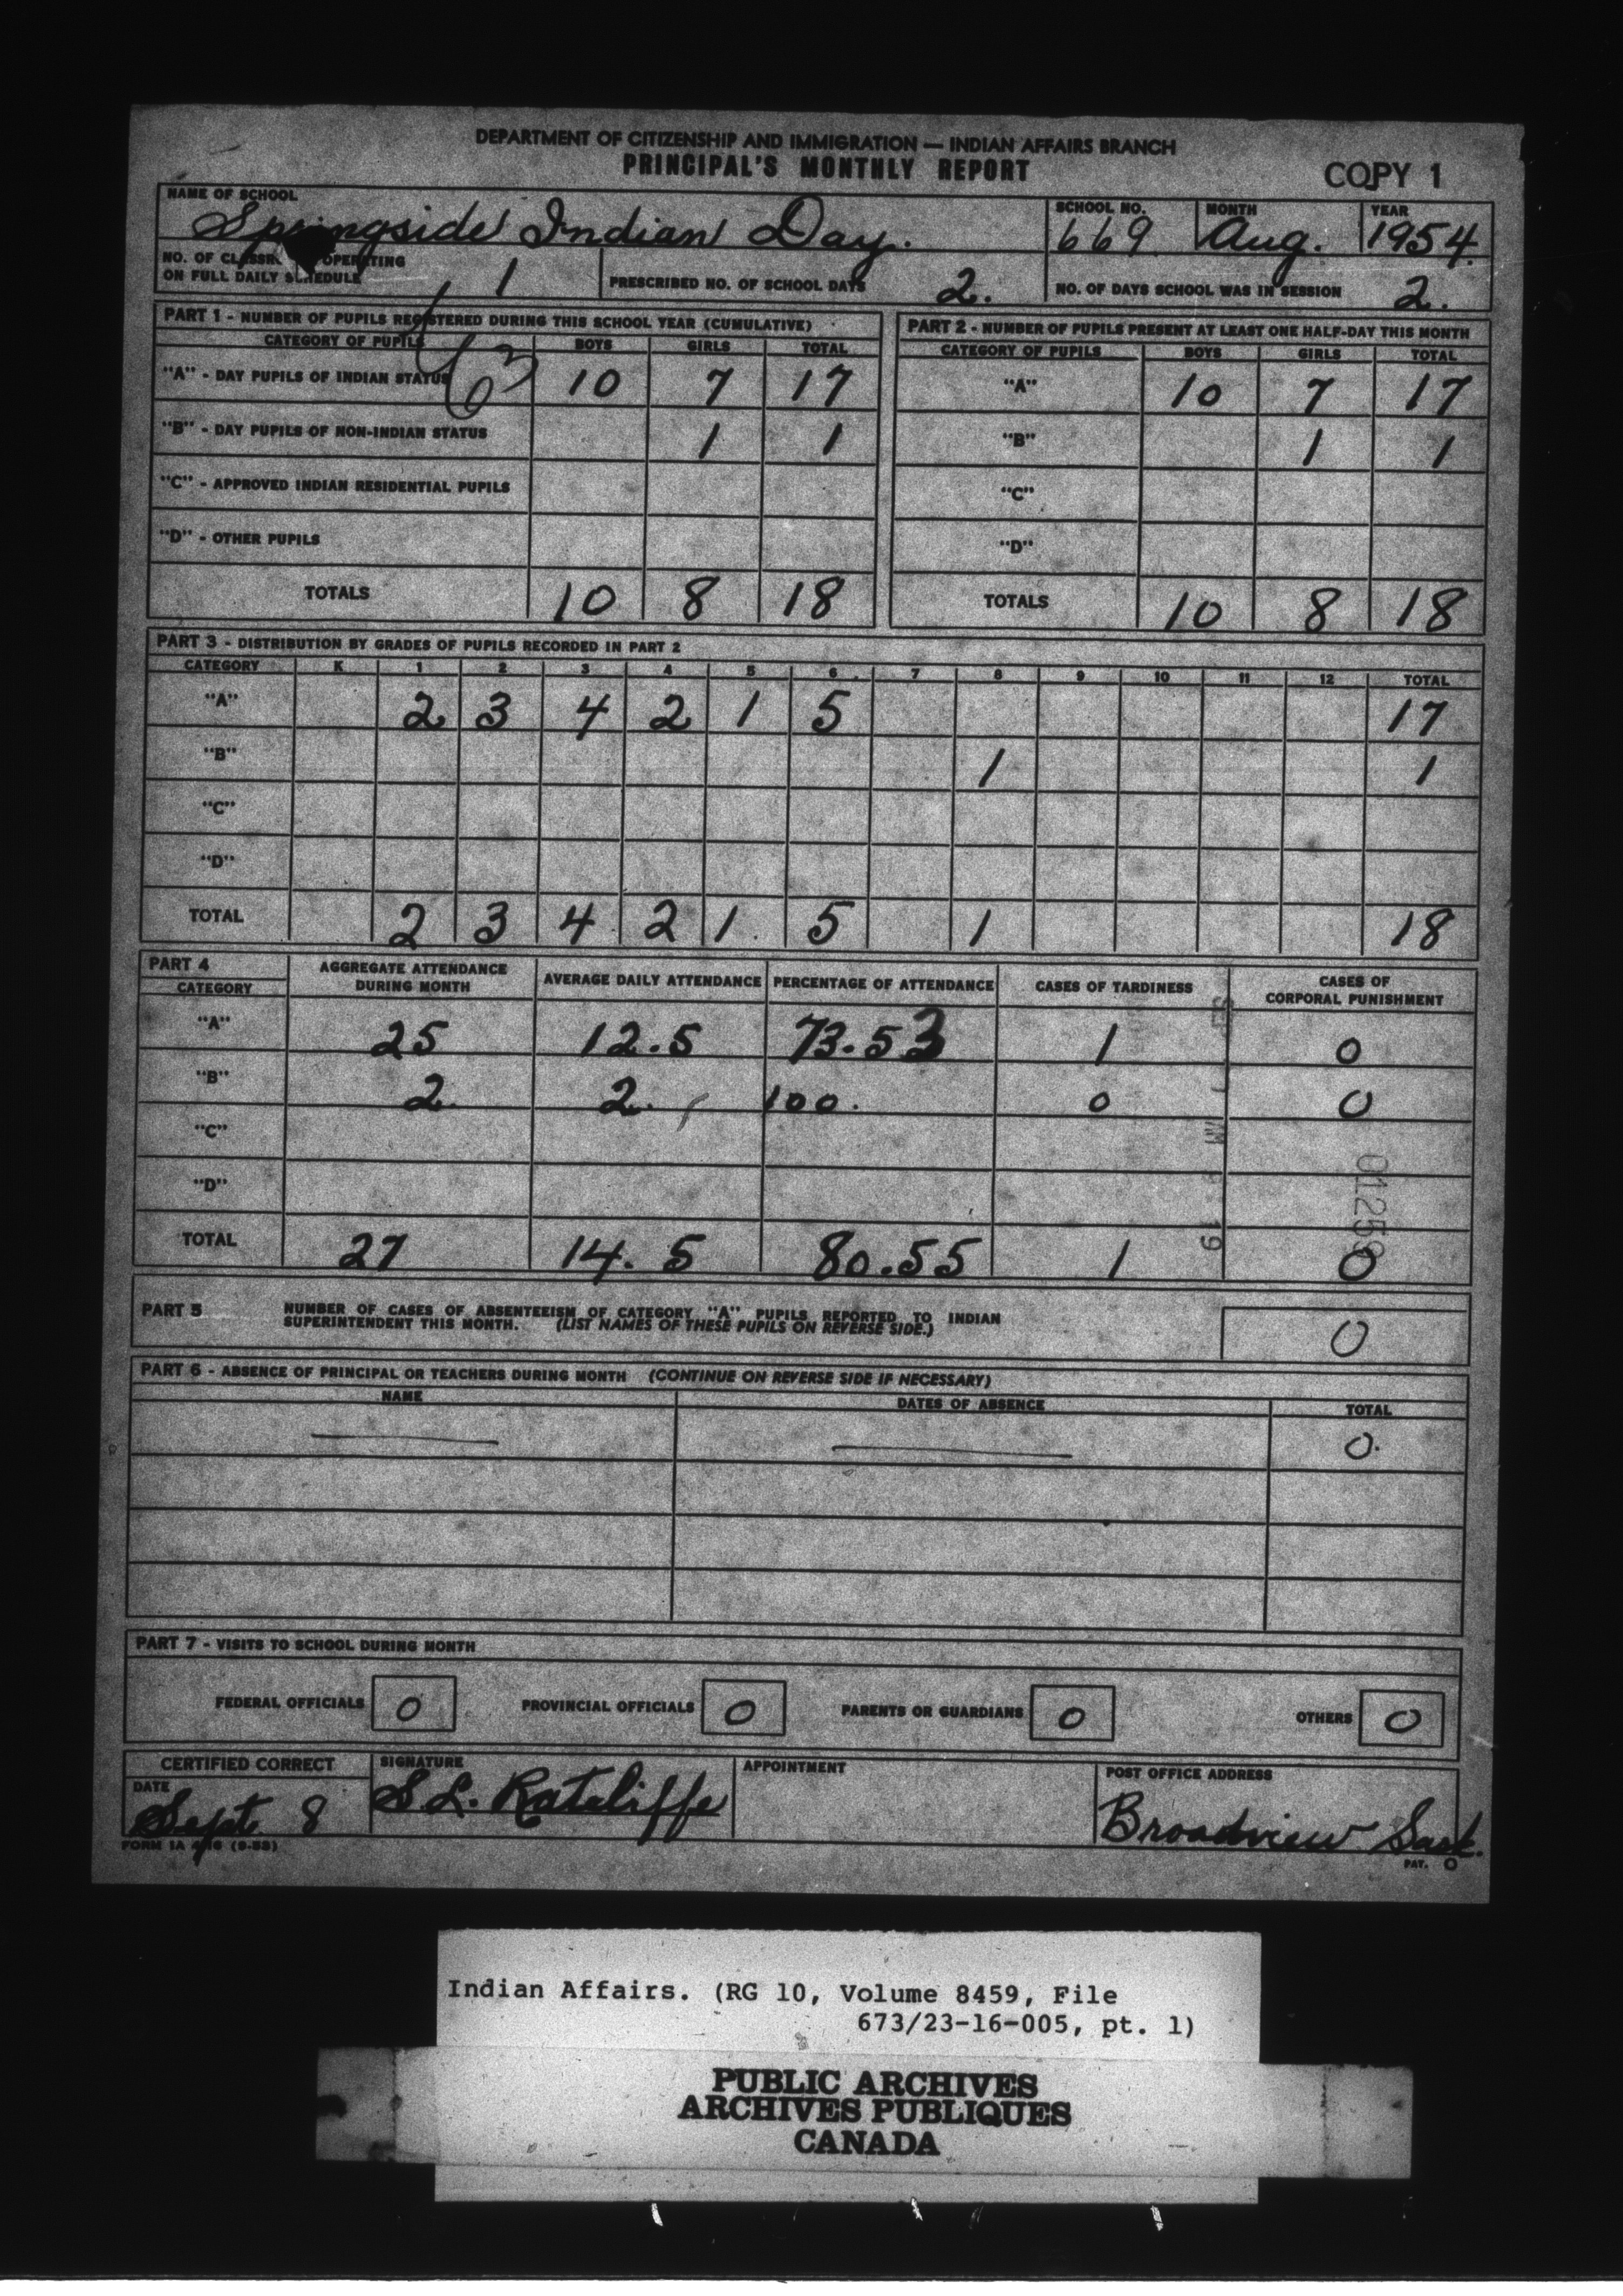 DEPARTMENT OF CITIZENSHIP AND IMMIGRATION — INDIAN AFFAIRS BRANCH
PRINCIPAL'S MONTHLY REPORT
COPY 1
NAME OF SCHOOL SCHOOL NO. MONTH YEAR
Springside Indian Day. 669 Aug. 1954.
NO. OF OPERATING
ON FULL DAILY SCHEDULE 1 PRESCRIBED NO. OF SCHOOL DAYS 2. NO. OF DAYS SCHOOL WAS IN SESSION 2.
PART 1 - NUMBER OF PUPILS REGISTERED DURING THIS SCHOOL YEAR (CUMULATIVE)
CATEGORY OF PUPILS BOYS GIRLS TOTAL
"A" - DAY PUPILS OF INDIAN STATUS 10 7 17
"B" - DAY PUPILS OF NON-INDIAN STATUS 1 1
"C" - APPROVED INDIAN RESIDENTIAL PUPILS
"D" - OTHER PUPILS
TOTALS 10 8 18
PART 2 - NUMBER OF PUPILS PRESENT AT LEAST ONE HALF-DAY THIS MONTH
CATEGORY OF PUPILS BOYS GIRLS TOTAL
"A" 10 7 17
"B" 1 1
"C"
"D"
TOTALS 10 8 18
PART 3 - DISTRIBUTION BY GRADES OF PUPILS RECORDED IN PART 2
CATEGORY K 1 2 3 4 5 6 7 8 9 10 11 12 TOTAL
"A" 2 3 4 2 1 5 17
"B" 1 1
"C"
"D"
TOTAL 2 3 4 2 1. 5 1 18
PART 4
CATEGORY AGGREGATE ATTENDANCE DURING MONTH AVERAGE DAILY ATTENDANCE PERCENTAGE OF ATTENDANCE CASES OF TARDINESS CASES OF CORPORAL PUNISHMENT
"A" 25 12.5 73.53 1 0
"B" 2. 2. 100. 0 0
"C"
"D"
TOTAL 27 14.5 80.55 1 0
PART 5 NUMBER OF CASES OF ABSENTEEISM OF CATEGORY "A" PUPILS REPORTED TO INDIAN
SUPERINTENDENT THIS MONTH. (LIST NAMES OF THESE PUPILS ON REVERSE SIDE.) 0
PART 6 - ABSENCE OF PRINCIPAL OR TEACHERS DURING MONTH (CONTINUE ON REVERSE SIDE IF NECESSARY)
NAME DATES OF ABSENCE TOTAL
0.
PART 7 - VISITS TO SCHOOL DURING MONTH
FEDERAL OFFICIALS 0 PROVINCIAL OFFICIALS 0 PARENTS OR GUARDIANS 0 OTHERS 0
CERTIFIED CORRECT SIGNATURE APPOINTMENT POST OFFICE ADDRESS
DATE
Sept 8 S.L. Ratcliffe Broadview Sask.
FORM 1A
PAT. O
Indian Affairs. (RG 10, Volume 8459, File
673/23-16-005, pt. 1)
PUBLIC ARCHIVES
ARCHIVES PUBLIQUES
CANADA